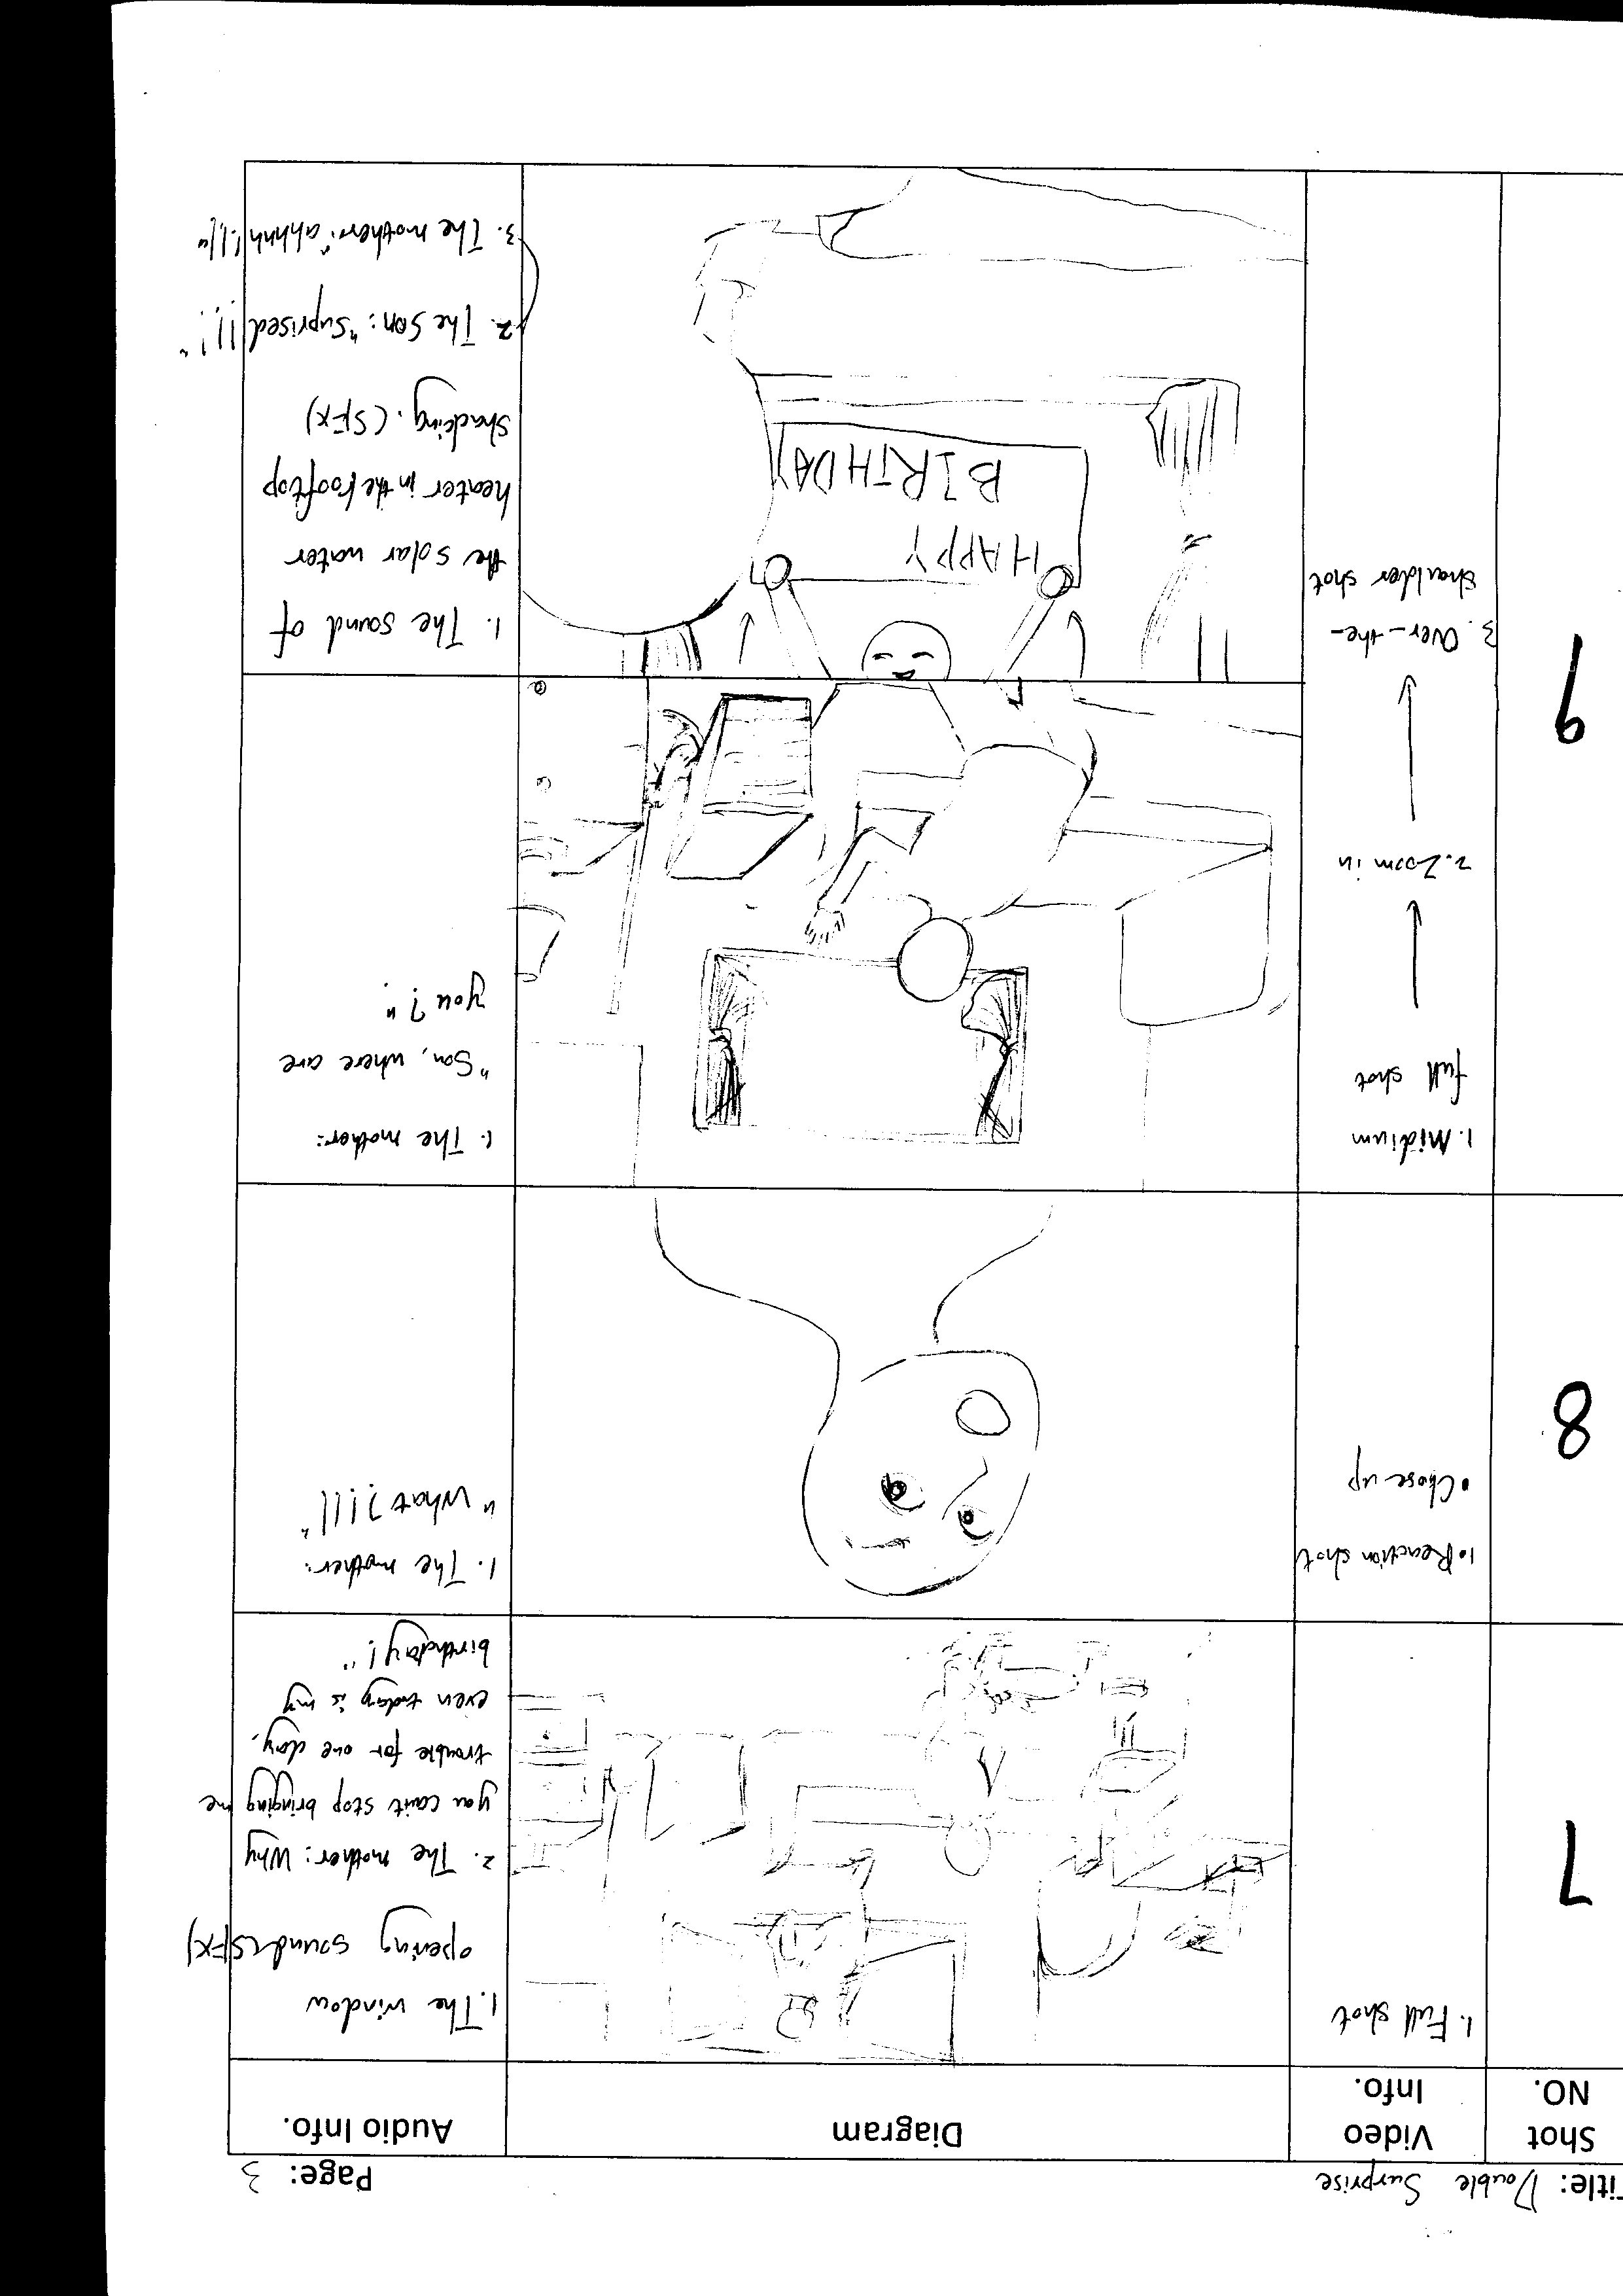 Title: Double Surprise
Page: 3
Shot
NO.
Video
Info.
Diagram
Audio Info.
7
1. Full shot
1. The window
opening sound(SFX)
2. The mother: Why
you can't stop bringing me
trouble for one day,
even today is my
birthday!"
8
1. Reaction shot
• Close up
1. The mother:
"What?!!!"
9
1. Midium
full shot
2. Zoom in
3. Over-the-
shoulder shot
1. The mother:
"Son, where are
you?"
HAPPY
BIRTHDAY
1. The sound of
the solar water
heater in the rooftop
Shacking. (SFX)
2. The Son: "Suprised!!!"
3. The mother: "ahhhh!!!"